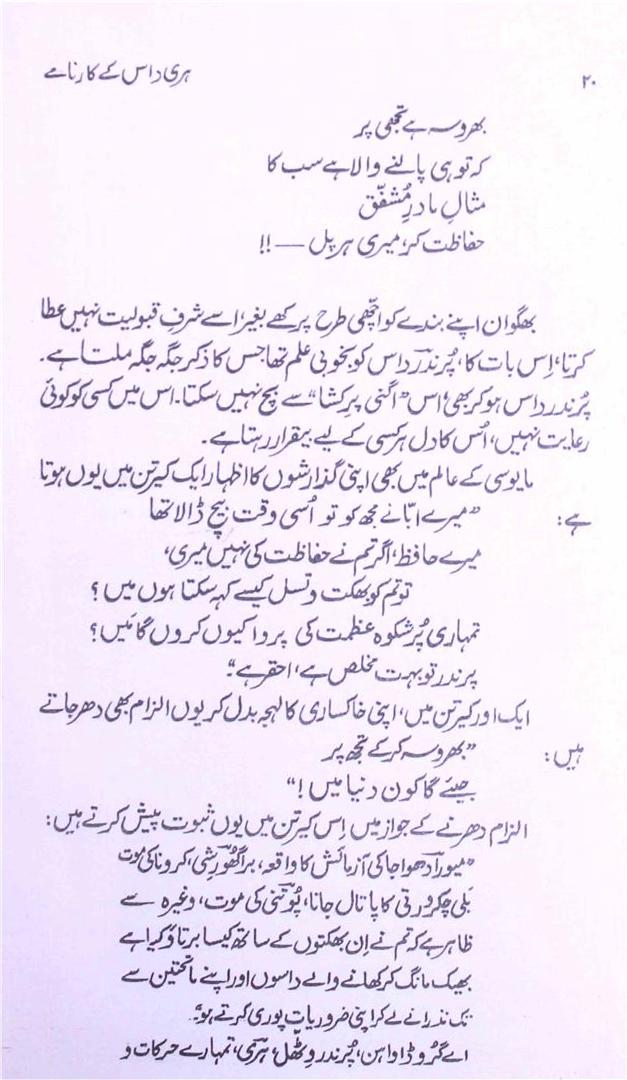 ۲۰
ہری داس کے کارنامے
بھروسہ ہے تجھی پر
کہ تو ہی پالنے والا ہے سب کا
مثالِ مادرِ مُشفّق
حفاظت کر، میری ہر پل — !!
بھگوان اپنے بندے کو اچھّی طرح پرکھے بغیر، اسے شرفِ قبولیت نہیں عطا
کرتا، اِس بات کا، پُرندر داس کو بخوبی علم تھا جس کا ذکر جگہ جگہ ملتا ہے۔
پُرندر داس ہو کر بھی، اس "اگنی پرکشا" سے بچ نہیں سکتا۔ اس میں کسی کو کوئی
رعایت نہیں، اُس کا دل ہر کسی کے لیے بیقرار رہتا ہے۔
مایوسی کے عالم میں بھی اپنی گذارشوں کا اظہار ایک کیرتن میں یوں ہوتا
ہے: "میرے ابّا نے مجھ کو تو اُسی وقت بیچ ڈالا تھا
میرے حافظ، اگر تم نے حفاظت کی نہیں میری،
تو تم کو بھکت وتسل کیسے کہہ سکتا ہوں میں؟
تمہاری پُر شکوہ عظمت کی پروا کیوں کروں گا مَیں؟
پرندر تو بہت مخلص ہے، احقر ہے"۔
ایک اور کیرتن میں، اپنی خاکساری کا لہجہ بدل کر یوں الزام بھی دھر جاتے
ہیں: "بھروسہ کر کے تجھ پر
جیئے گا کون دنیا میں!"
الزام دھرنے کے جواز میں اِس کیرتن میں یوں ثبوت پیش کرتے ہیں:
"میورا دھواجا کی آزمائش کا واقعہ، کرونا کی موت
بَلی چکرورتی کا پاتال جانا، پُوتنی کی موت، وغیرہ سے
ظاہر ہے کہ تم نے اِن بھکتوں کے ساتھ کیسا برتاؤ کیا ہے
بھیک مانگ کر کھانے والے داسوں اور اپنے ماتحتین سے
تک نذرانے لے کر اپنی ضروریات پوری کرتے ہو"۔
اے گروڈا واہن، پُرندر وٹھّل، ہرّی، تمہارے حرکات و